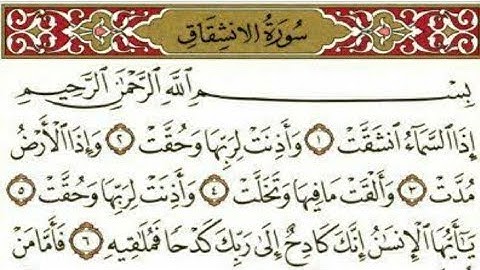 سُورَةُ الانشِقَاقِ
بِسْمِ اللَّهِ الرَّحْمَٰنِ الرَّحِيمِ
إِذَا السَّمَاءُ انشَقَّتْ ١ وَأَذِنَتْ لِرَبِّهَا وَحُقَّتْ ٢ وَإِذَا الْأَرْضُ
مُدَّتْ ٣ وَأَلْقَتْ مَا فِيهَا وَتَخَلَّتْ ٤ وَأَذِنَتْ لِرَبِّهَا وَحُقَّتْ ٥
يَا أَيُّهَا الْإِنسَانُ إِنَّكَ كَادِحٌ إِلَىٰ رَبِّكَ كَدْحًا فَمُلَاقِيهِ ٦ فَأَمَّا مَنْ